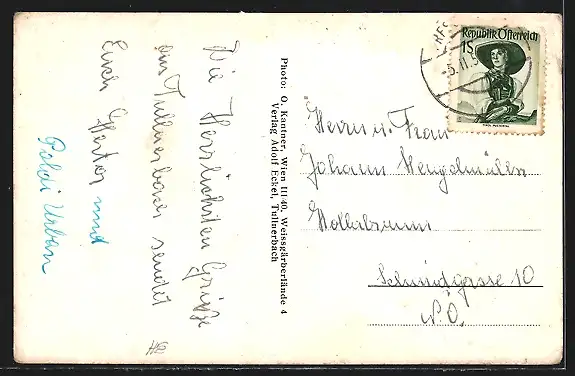 Die Herzlichsten Grüße
aus Tullnerbach sendet
Euch Hertha und
Poldi Urban
Photo: O. Kantner, Wien III/40, Weissgärberlände 4
Verlag Adolf Eckel, Tullnerbach
Republik Österreich
1S
Herrn u. Frau
Johann Hengelmüller
Wollersbrunn
Schmidgasse 10
N.Ö.